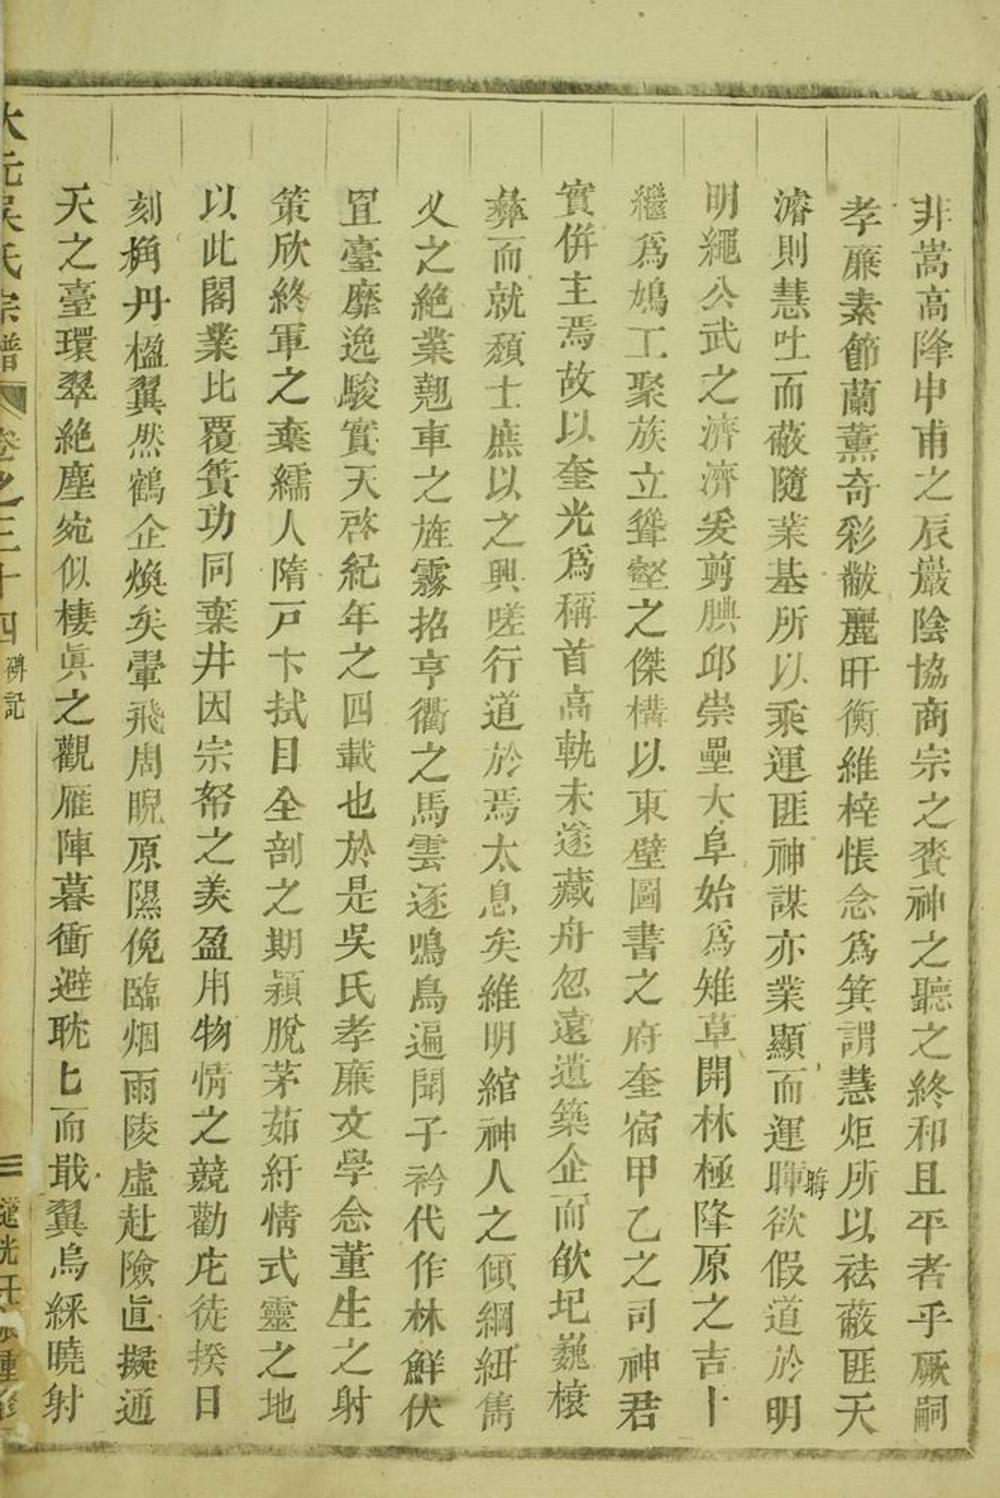 非嵩高降申甫之辰巖陰協商宗之賚神之聽之終和且平者乎厥嗣
孝廉素節蘭薰奇彩黻麗旰衡維梓悵念爲箕謂慧炬所以祛蔽匪天
濬則慧吐而蔽隨業基所以乘運匪神謀亦業顯而運暉欲假道於明
明繩公武之濟濟爰剪腆邱崇壘大阜始爲雉草開林極降原之吉卜
繼爲鳩工聚族立聳壑之傑構以東壁圖書之府奎宿甲乙之司神君
實併主焉故以奎光爲稱首高軌未遂藏舟忽遠遺築企而欲圯巍榱
彝而就頹士庶以之興嗟行道於焉太息矣維明綰神人之傾綱紐雋
乂之絶業翹車之旌霧招亨衢之馬雲逐鳴鳥遍聞子衿代作林鮮伏
罝臺靡逸駿實天啓紀年之四載也於是吳氏孝廉文學念董生之射
策欣終軍之棄繻人隋戸卞拭目全剖之期穎脫茅茹紆情式靈之地
以此閣業比覆簣功同棄井因宗帑之羨盈用物情之競勸庀徒揆日
刻桷丹楹翼然鶴企煥矣翬飛周睨原隰俛臨烟雨陵虛赴險眞擬通
天之臺環翠絶塵宛似棲眞之觀雁陣暮衝避耽匕而戢翼烏綵曉射
大元吳氏宗譜
卷之三十四 碑記
三